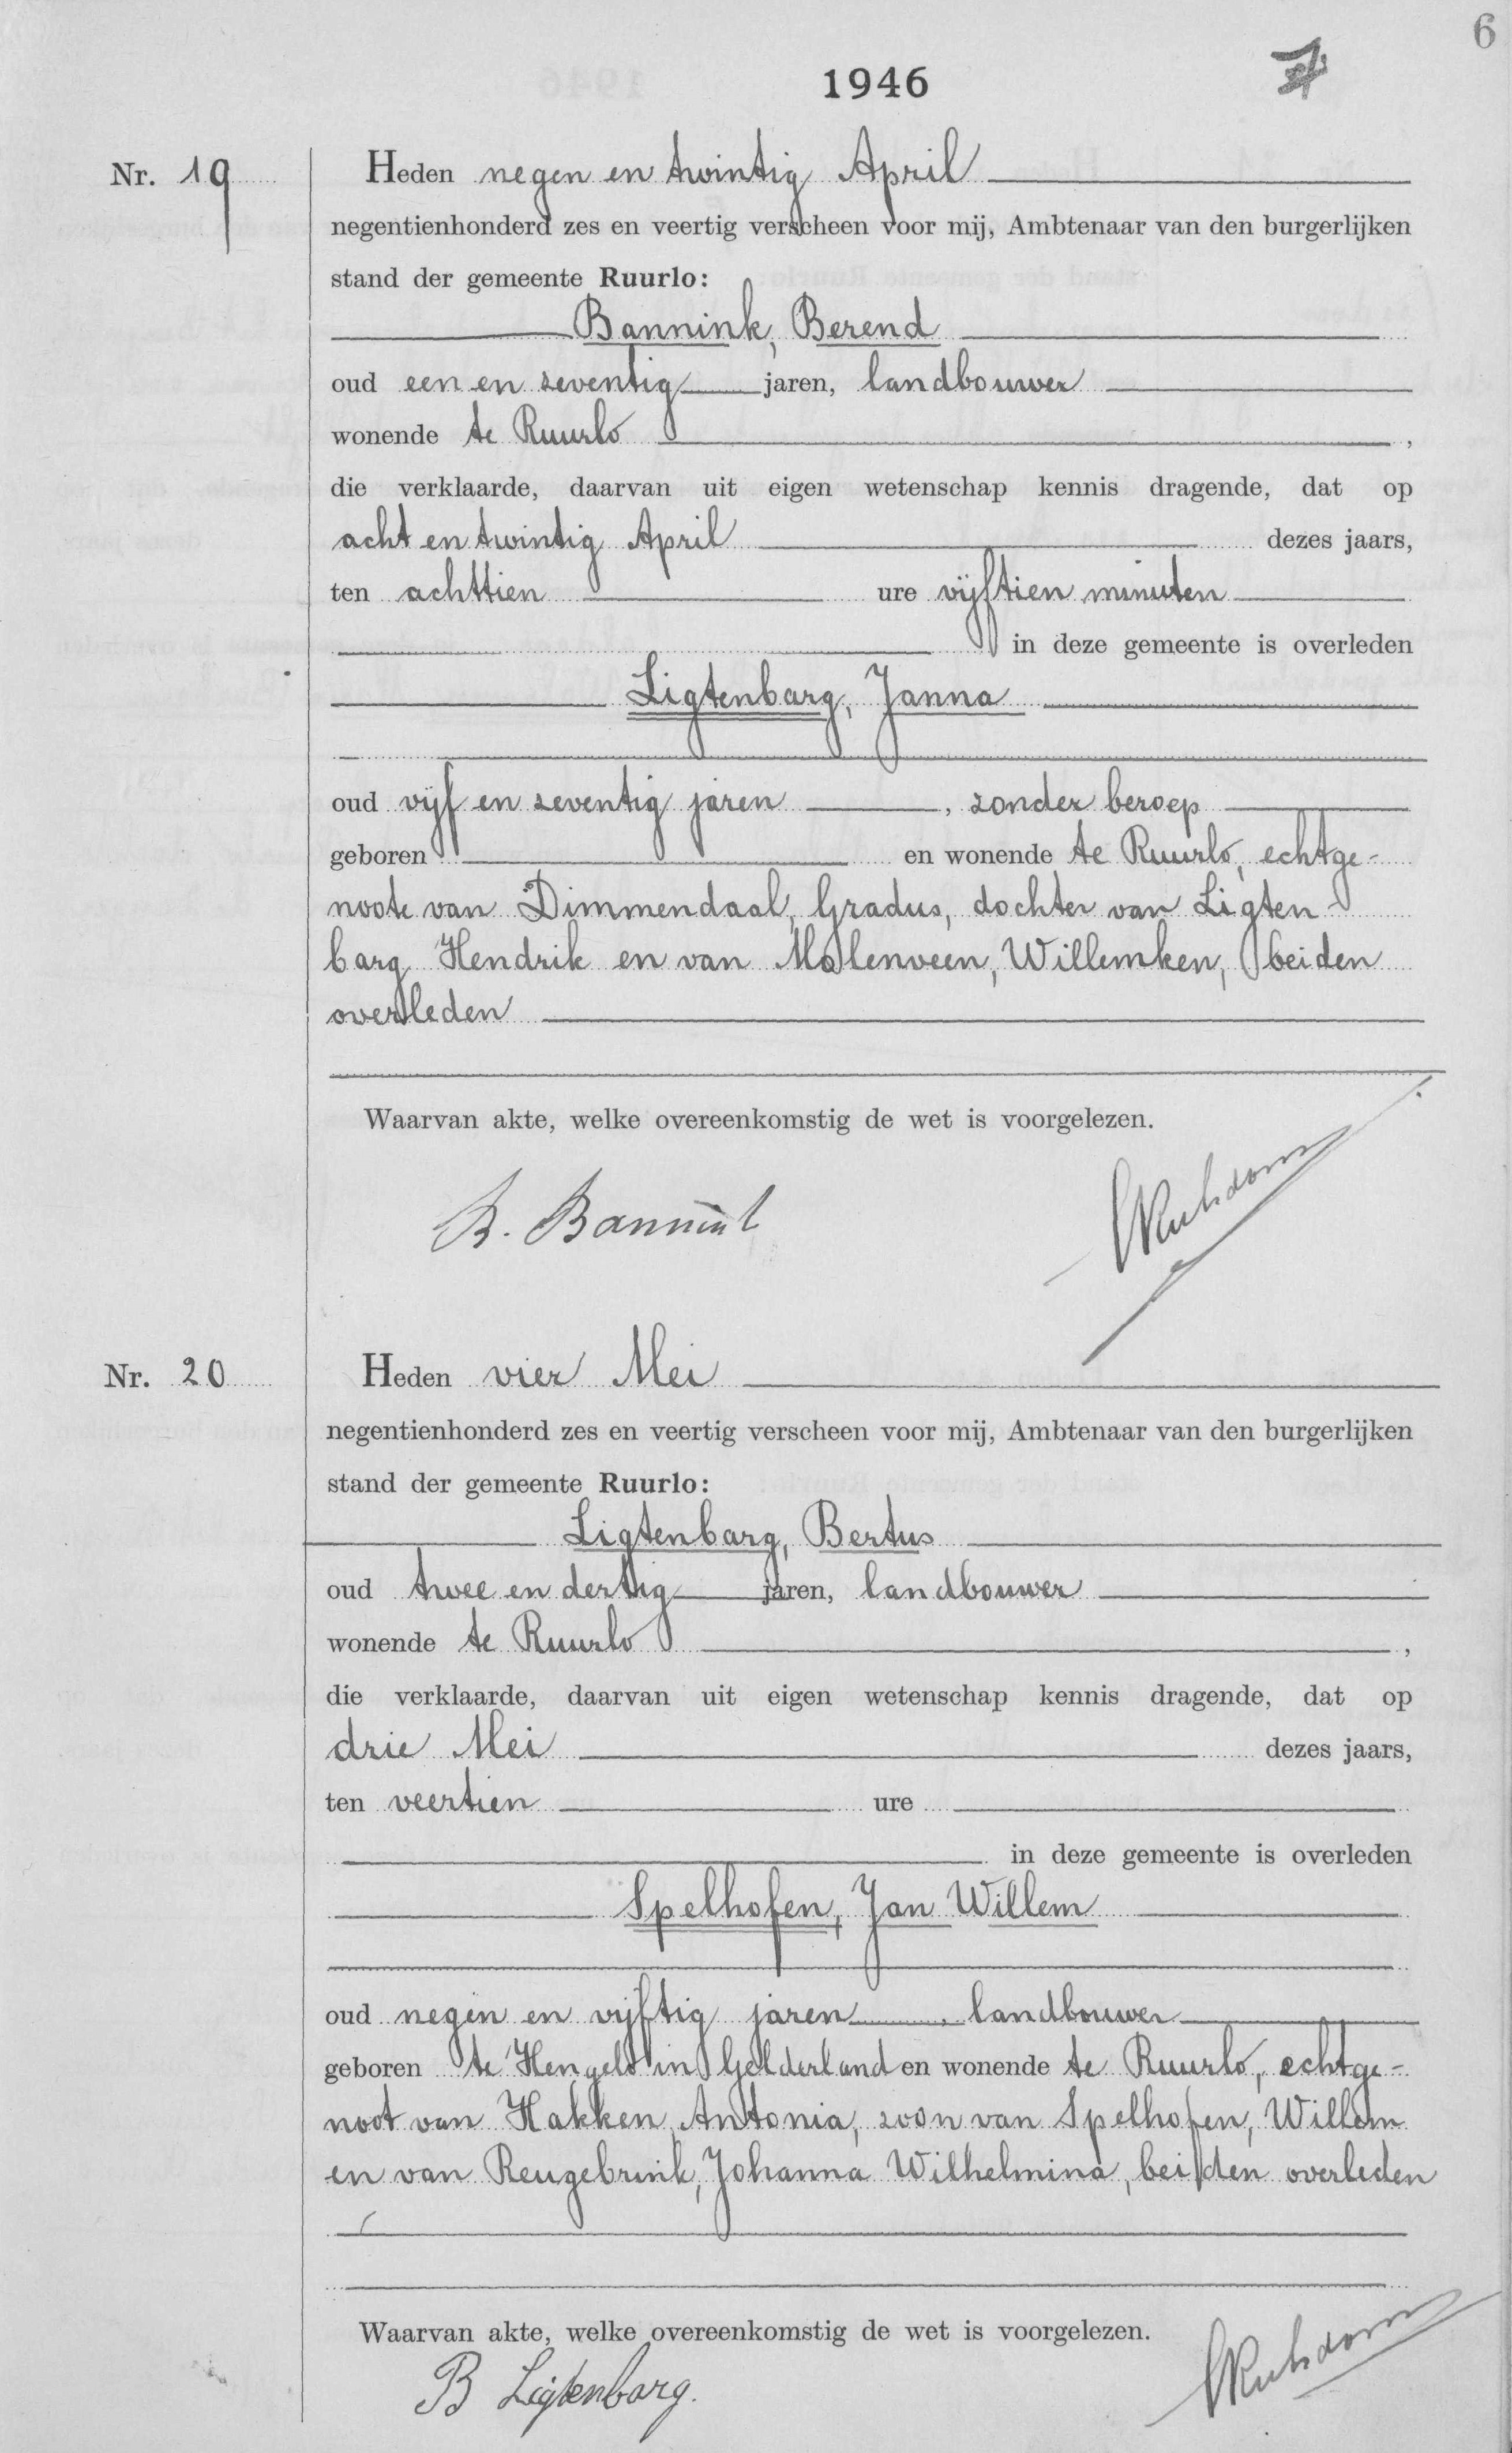 6
1946
Nr. 19
Heden negen en twintig April
negentienhonderd zes en veertig verscheen voor mij, Ambtenaar van den burgerlijken
stand der gemeente Ruurlo:
Bannink, Berend
oud een en zeventig jaren, landbouwer
wonende te Ruurlo,
die verklaarde, daarvan uit eigen wetenschap kennis dragende, dat op
acht en twintig April dezes jaars,
ten achttien ure vijftien minuten
in deze gemeente is overleden
Ligtenbarg, Janna
oud vijf en zeventig jaren, zonder beroep
geboren en wonende te Ruurlo, echtge-
noote van Dimmendaal, Gradus, dochter van Ligten-
barg Hendrik en van Molenveen, Willemken, beiden
overleden
Waarvan akte, welke overeenkomstig de wet is voorgelezen.
B. Bannink
Nr. 20
Heden vier Mei
negentienhonderd zes en veertig verscheen voor mij, Ambtenaar van den burgerlijken
stand der gemeente Ruurlo:
Ligtenbarg, Bertus
oud twee en dertig jaren, landbouwer
wonende te Ruurlo,
die verklaarde, daarvan uit eigen wetenschap kennis dragende, dat op
drie Mei dezes jaars,
ten veertien ure
in deze gemeente is overleden
Spelhofen, Jan Willem
oud negen en vijftig jaren, landbouwer
geboren te Hengelo in Gelderland en wonende te Ruurlo, echtge-
noot van Hakken, Antonia, zoon van Spelhofen, Willem
en van Reugebrink, Johanna Wilhelmina, beiden overleden
Waarvan akte, welke overeenkomstig de wet is voorgelezen.
B Ligtenbarg.